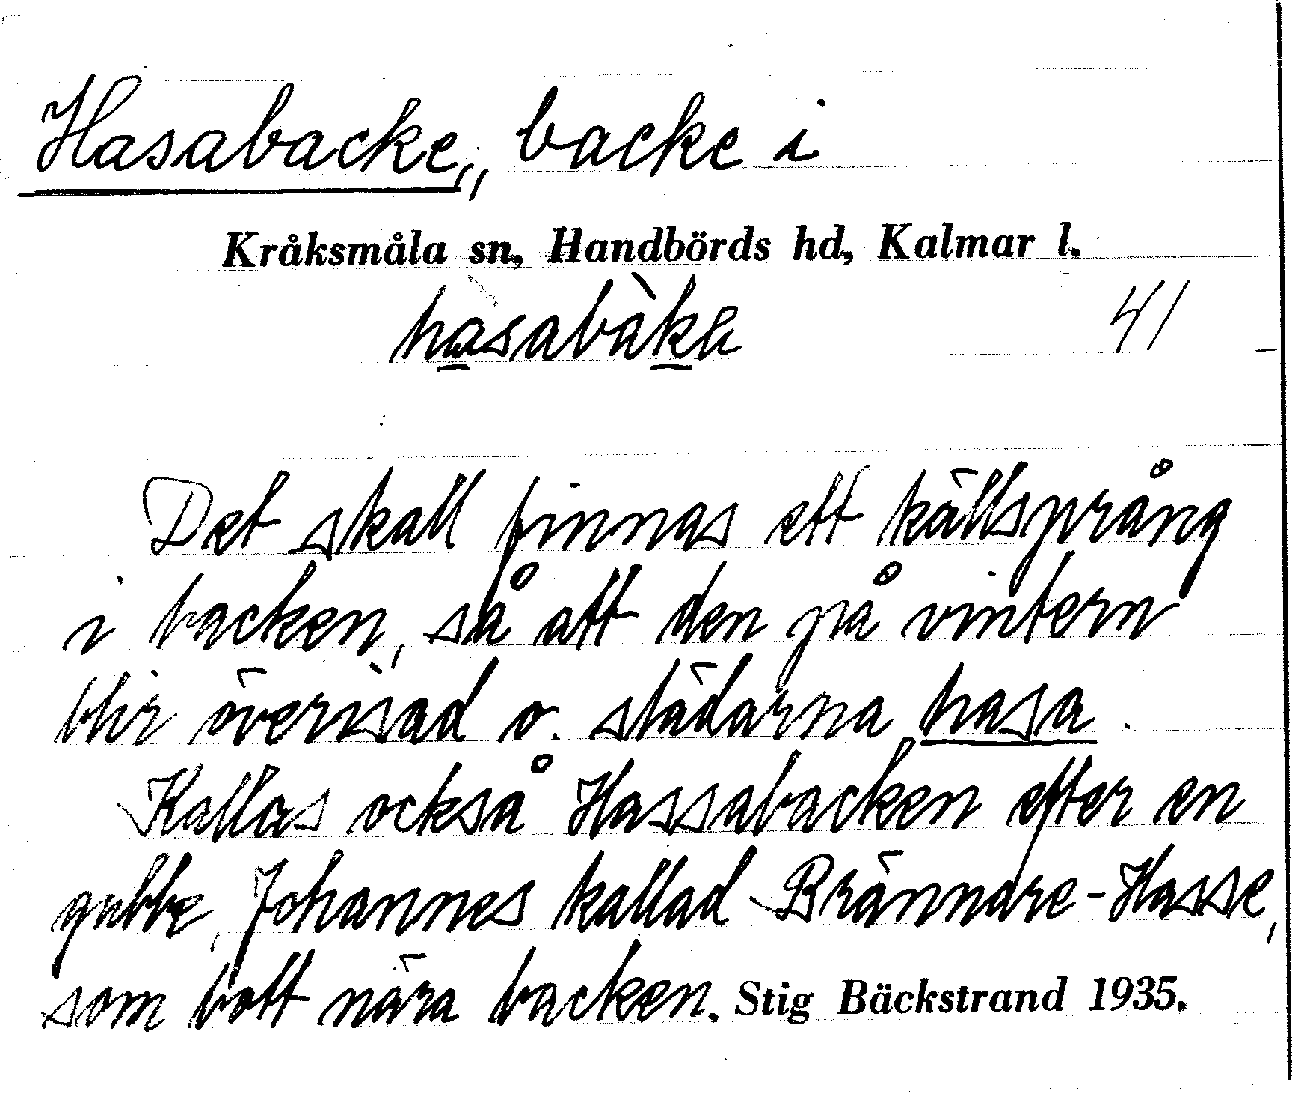 Hasabacke, backe i
Kråksmåla sn, Handbörds hd, Kalmar l.
41
Det skall finnas ett källsprång
i backen, så att den på vintern
blir överisad o. städarna hasa.
Kallas också Hassabacken efter en
gubbe, Johannes kallad Brännare-Hasse,
som bott nära backen. Stig Bäckstrand 1935.